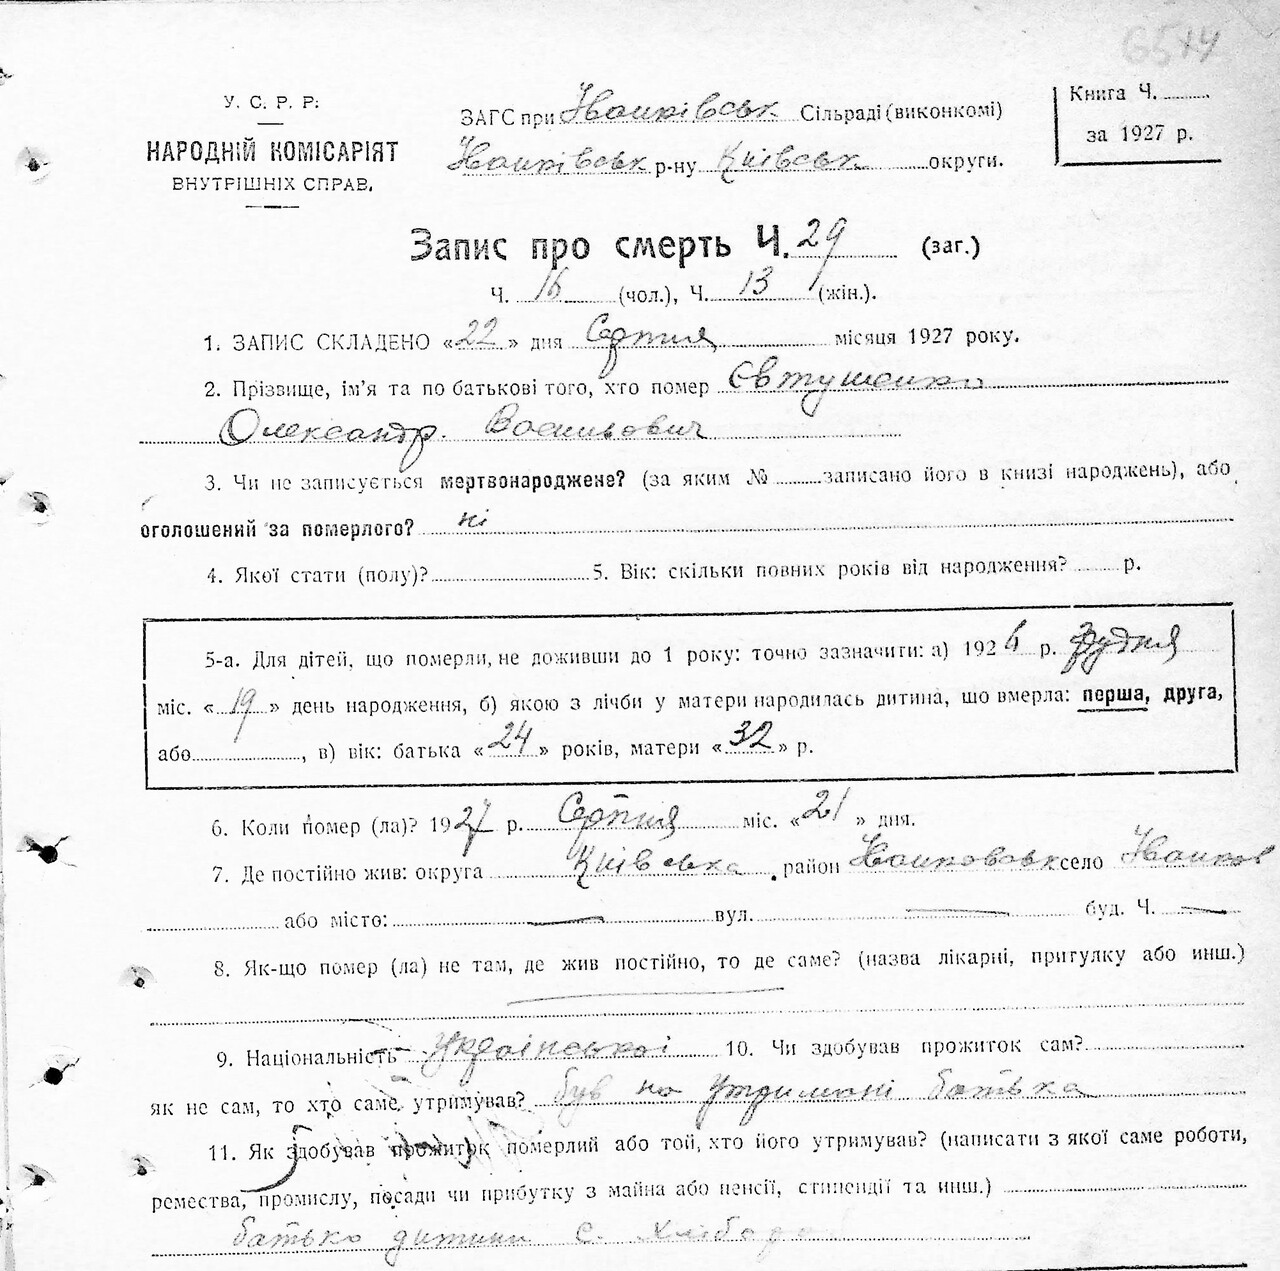 6514
У. С. Р. Р.
НАРОДНІЙ КОМІСАРІЯТ
ВНУТРІШНІХ СПРАВ.
ЗАГС при Іванківськ Сільраді (виконкомі)
Іванківськ р-ну Київськ округи.
Книга Ч.
за 1927 р.
Запис про смерть Ч. 29 (заг.)
Ч. 16 (чол.), Ч. 13 (жін.).
1. ЗАПИС СКЛАДЕНО «22» дня Серпня місяця 1927 року.
2. Прізвище, ім'я та по батькові того, хто помер Євтушенко
Олександр. Васильович
3. Чи не записується мертвонароджене? (за яким № записано його в книзі народжень), або
оголошений за померлого? ні
4. Якої стати (полу)? 5. Вік: скільки повних років від народження? р.
5-а. Для дітей, що померли, не доживши до 1 року: точно зазначити: а) 1926 р. Грудня
міс. «19» день народження, б) якою з лічби у матери народилась дитина, що вмерла: перша, друга,
або, в) вік: батька «24» років, матери «32» р.
6. Коли помер (ла)? 1927 р. Серпня міс. «21» дня.
7. Де постійно жив: округа Київська район Іванковськ село Іванков
або місто: — вул. — буд. Ч. —
8. Як-що помер (ла) не там, де жив постійно, то де саме? (назва лікарні, притулку або инш.)
9. Національність Української 10. Чи здобував прожиток сам?
як не сам, то хто саме утримував? був на утримані батька
11. Як здобував прожиток померлий або той, хто його утримував? (написати з якої саме роботи,
ремества, промислу, посади чи прибутку з майна або пенсії, стипендії та инш.)
батько дитини є. Хлібороб